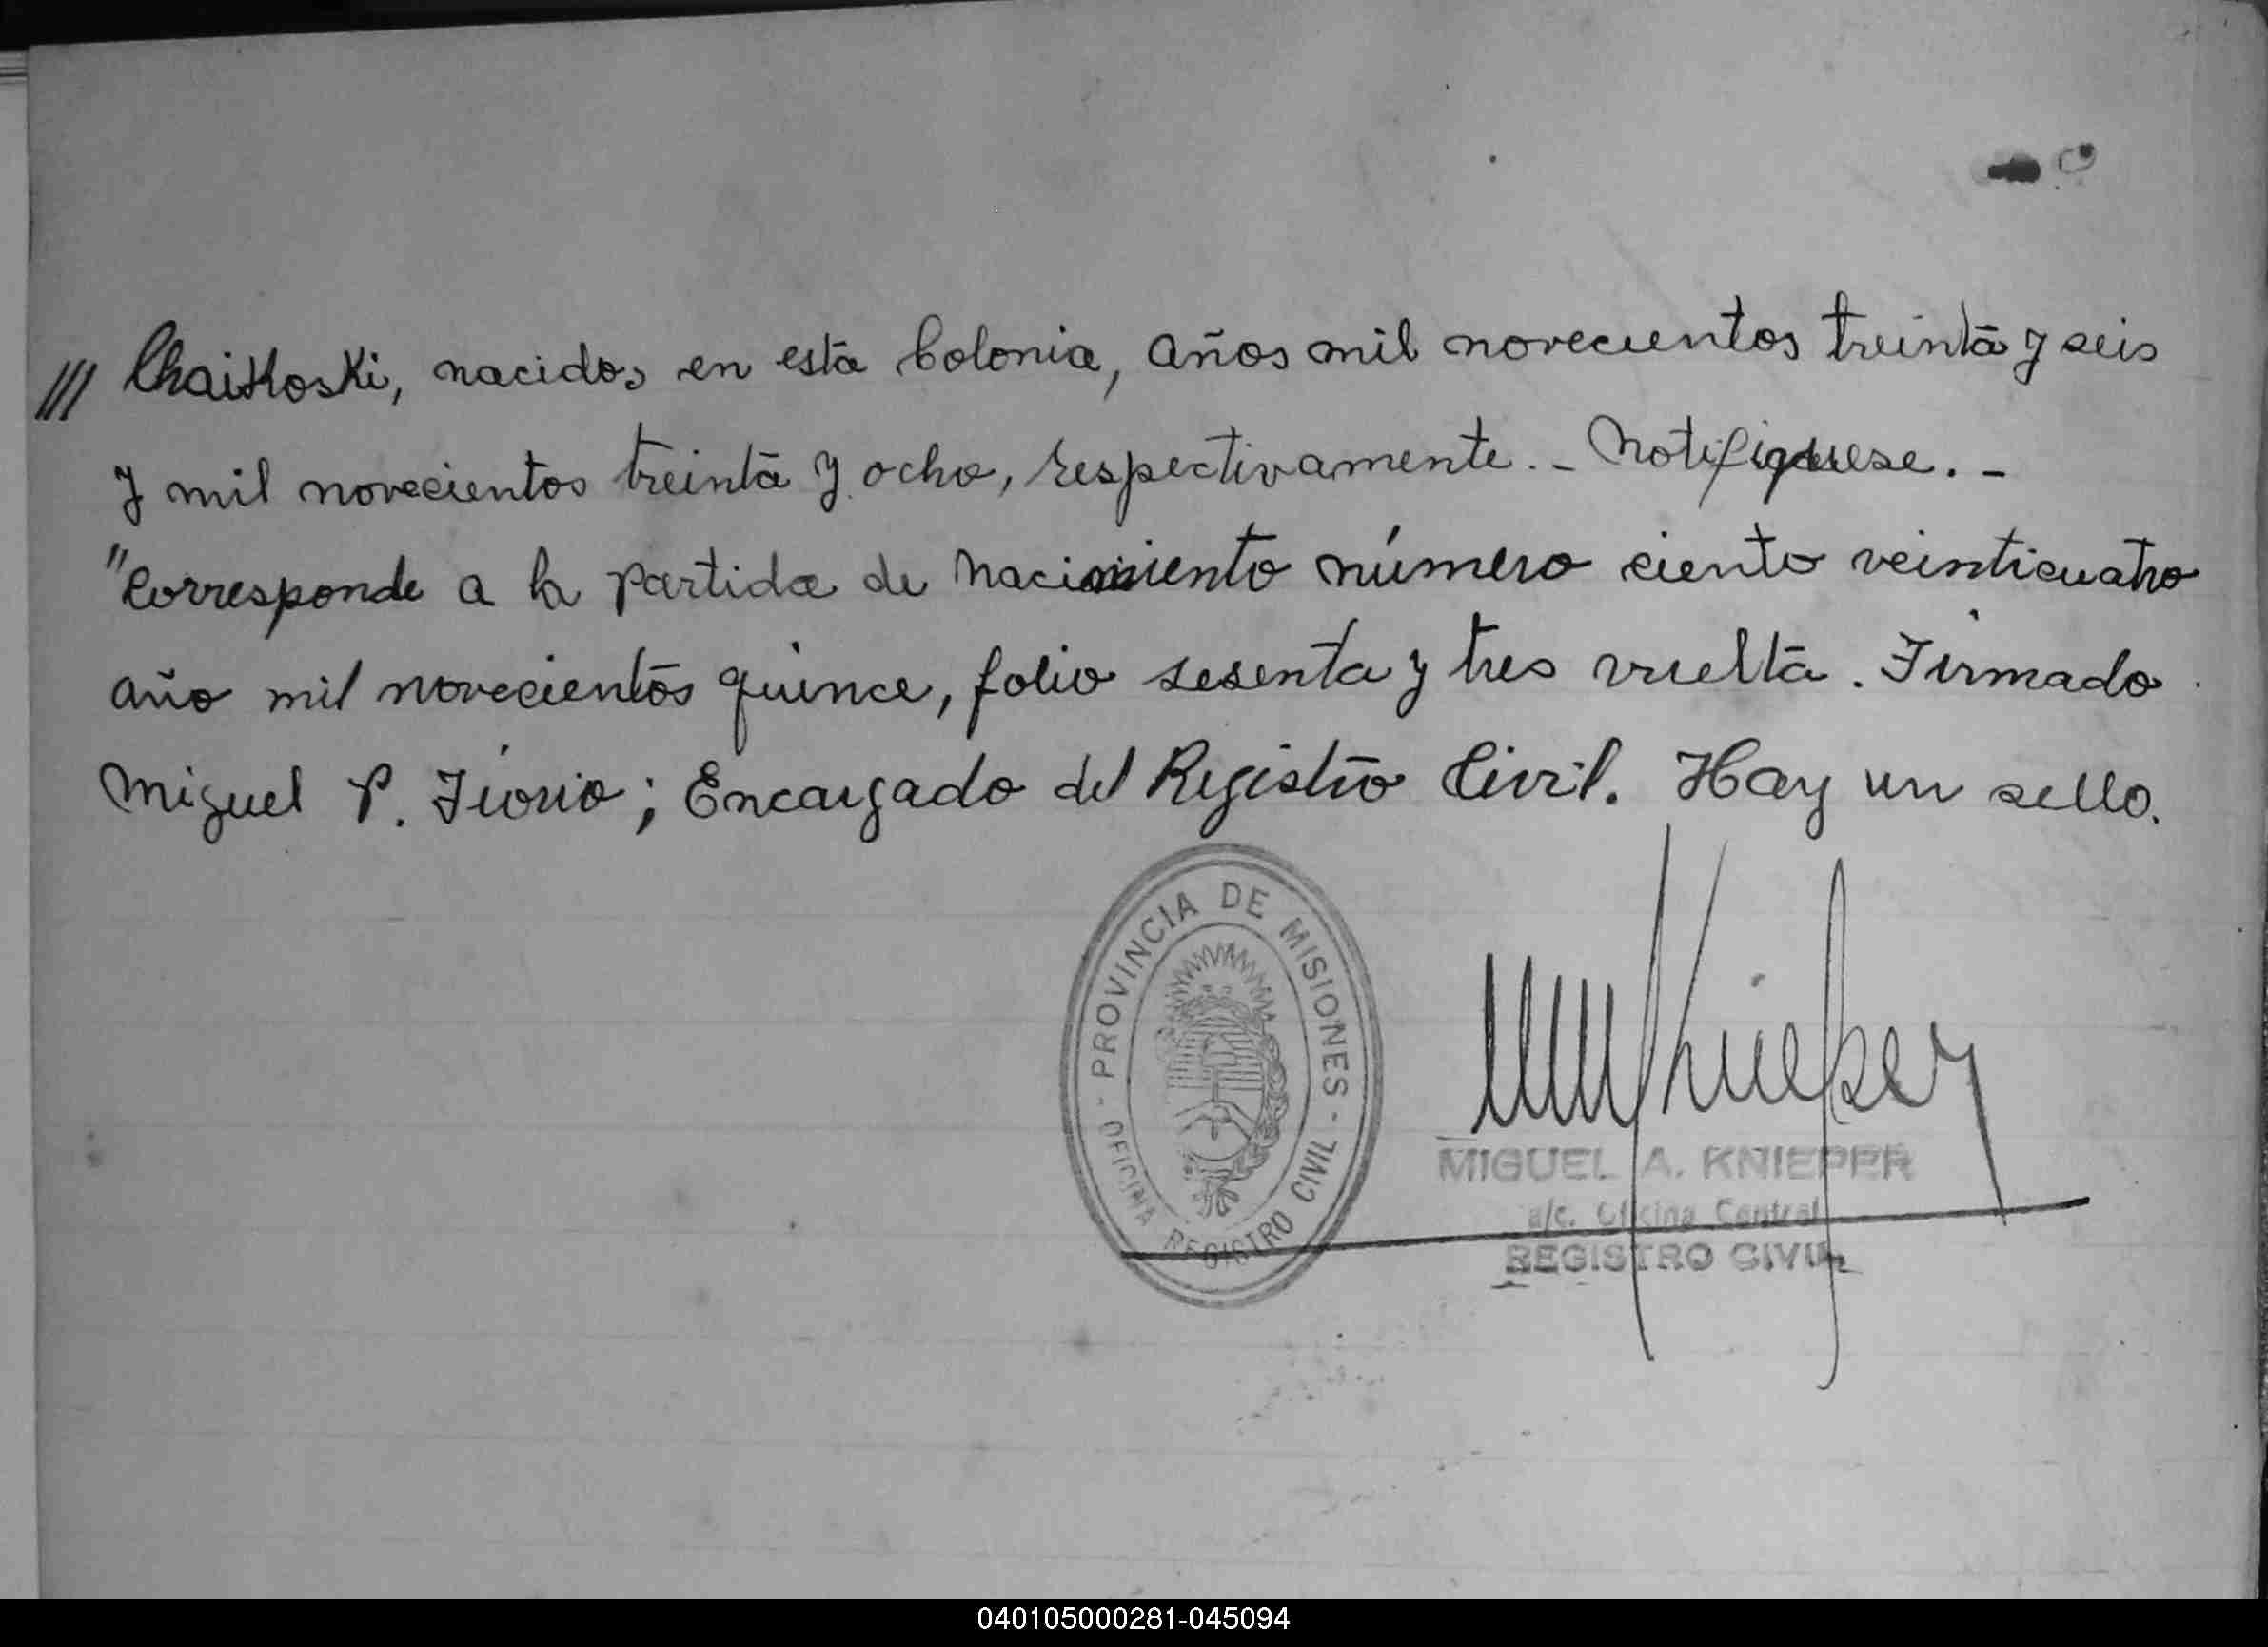 /// Chaikoski, nacidos en esta Colonia, años mil novecientos treinta y seis
y mil novecientos treinta y ocho, respectivamente.- Notifiquese.-
"Corresponde a la partida de nacimiento número ciento veinticuatro
año mil novecientos quince, folio sesenta y tres vuelta. Firmado
Miguel P. Fiorio; Encargado del Registro Civil. Hay un sello.
- PROVINCIA DE MISIONES -
OFICINA REGISTRO CIVIL
MKnieper
MIGUEL A. KNIEPER
a/c. Oficina Central
REGISTRO CIVIL
040105000281-045094